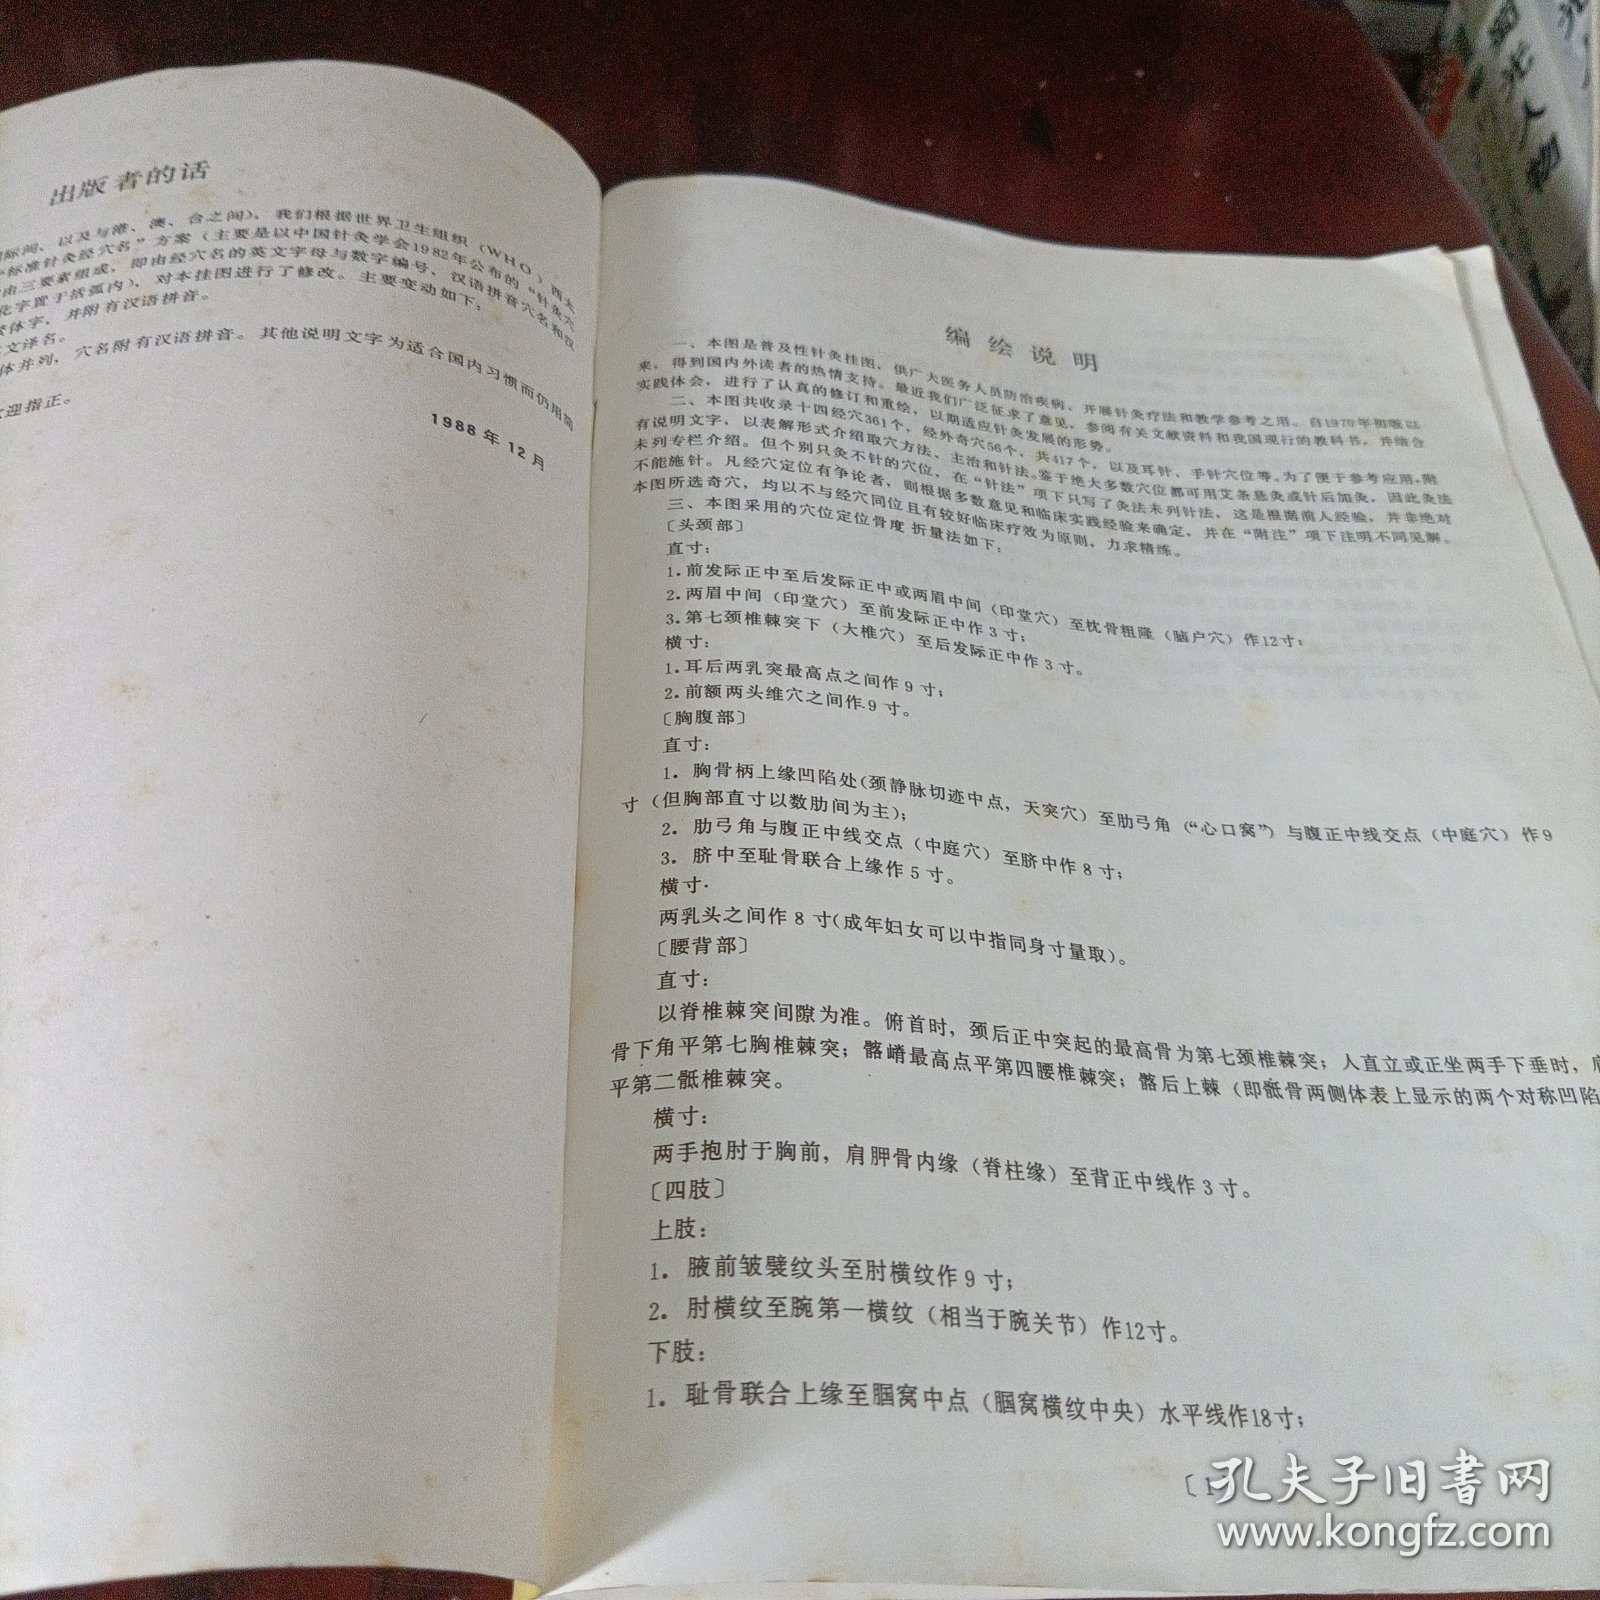 出版者的话
国际间、以及与港、澳、台之间)，我们根据世界卫生组织(WHO)西太
“标准针灸经穴名”方案(主要是以中国针灸学会1982年公布的“针灸穴
由三要素组成，即由经穴名的英文字母与数字编号、汉语拼音穴名和汉
化字置于括弧内)，对本挂图进行了修改。主要变动如下：
繁体字，并附有汉语拼音。
文译名。
体并列，穴名附有汉语拼音。其他说明文字为适合国内习惯而仍用简
欢迎指正。
1988年12月
编绘说明
一、本图是普及性针灸挂图，供广大医务人员防治疾病、开展针灸疗法和教学参考之用。自1970年初版以
来，得到国内外读者的热情支持。最近我们广泛征求了意见，参阅有关文献资料和我国现行的教科书，并结合
实践体会，进行了认真的修订和重绘，以期适应针灸发展的形势。
二、本图共收录十四经穴361个，经外奇穴56个，共417个，以及耳针、手针穴位等。为了便于参考应用，附
有说明文字，以表解形式介绍取穴方法、主治和针法。鉴于绝大多数穴位都可用艾条悬灸或针后加灸，因此灸法
未列专栏介绍。但个别只灸不针的穴位，在“针法”项下只写了灸法未列针法，这是根据前人经验，并非绝对
不能施针。凡经穴定位有争论者，则根据多数意见和临床实践经验来确定，并在“附注”项下注明不同见解。
本图所选奇穴，均以不与经穴同位且有较好临床疗效为原则，力求精练。
三、本图采用的穴位定位骨度折量法如下：
〔头颈部〕
直寸：
1.前发际正中至后发际正中或两眉中间（印堂穴）至枕骨粗隆（脑户穴）作12寸；
2.两眉中间（印堂穴）至前发际正中作3寸；
3.第七颈椎棘突下（大椎穴）至后发际正中作3寸。
横寸：
1.耳后两乳突最高点之间作9寸；
2.前额两头维穴之间作9寸。
〔胸腹部〕
直寸：
1.胸骨柄上缘凹陷处(颈静脉切迹中点，天突穴）至肋弓角（“心口窝”）与腹正中线交点（中庭穴）作9
寸（但胸部直寸以数肋间为主)；
2.肋弓角与腹正中线交点（中庭穴）至脐中作8寸；
3.脐中至耻骨联合上缘作5寸。
横寸·
两乳头之间作8寸(成年妇女可以中指同身寸量取)。
〔腰背部〕
直寸：
以脊椎棘突间隙为准。俯首时，颈后正中突起的最高骨为第七颈椎棘突；人直立或正坐两手下垂时，肩
骨下角平第七胸椎棘突；髂嵴最高点平第四腰椎棘突；髂后上棘（即骶骨两侧体表上显示的两个对称凹陷
平第二骶椎棘突。
横寸：
两手抱肘于胸前，肩胛骨内缘（脊柱缘）至背正中线作3寸。
〔四肢〕
上肢：
1.腋前皱襞纹头至肘横纹作9寸；
2.肘横纹至腕第一横纹（相当于腕关节）作12寸。
下肢：
1.耻骨联合上缘至腘窝中点（腘窝横纹中央）水平线作18寸；
〔1
孔夫子旧书网
www.kongfz.com